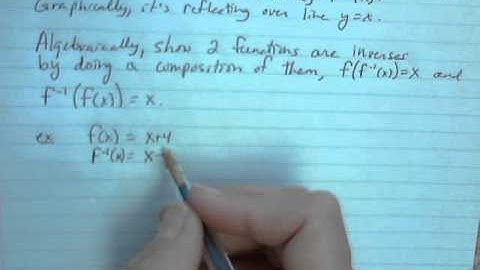 Graphically, it's reflecting over line y=x.
Algebraically, show 2 functions are inverses
by doing a composition of them, f(f⁻¹(x))=x and
f⁻¹(f(x)) = x.
ex f(x) = x+4
f⁻¹(x) = x-